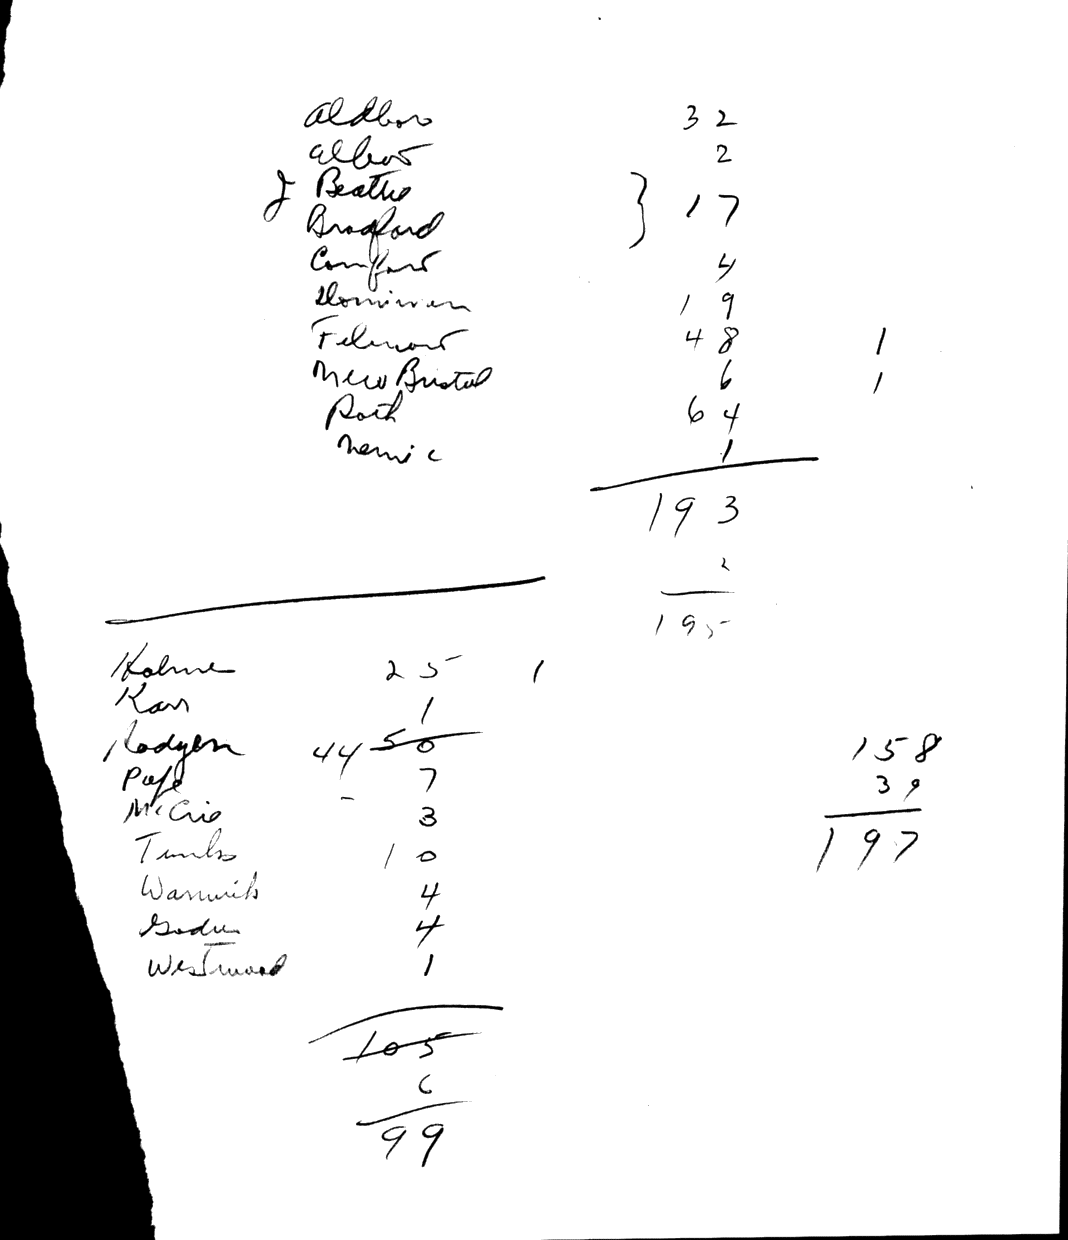 Aldboro 32
Albert 2
J Beattie
} 17
Bradford
Comfort 4
Dominion 19
Filmont 48 1
New Bristol 6 1
Roth 64
1
193
2
195
Holme 25 1
Karr 1
Rodgers 44 50
Pope 7
McCrie 3
10
Warwick 4
4
Westwood 1
105
6
99
158
39
197